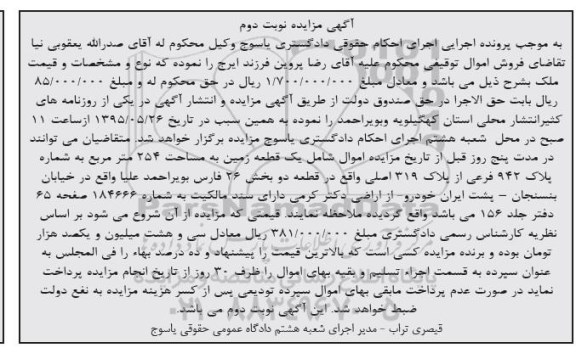 آگهی مزایده نوبت دوم
به موجب پرونده اجرایی اجرای احکام حقوقی دادگستری یاسوج وکیل محکوم له آقای صدرالله یعقوبی نیا
تقاضای فروش اموال توقیفی محکوم علیه آقای رضا پروین فرزند ایرج را نموده که نوع و مشخصات و قیمت
ملک بشرح ذیل می باشد و معادل مبلغ ۱/۷۰۰/۰۰۰/۰۰۰ ریال در حق محکوم له و مبلغ ۸۵/۰۰۰/۰۰۰
ریال بابت حق الاجرا در حق صندوق دولت از طریق آگهی مزایده و انتشار آگهی در یکی از روزنامه های
کثیرانتشار محلی استان کهگیلویه وبویراحمد را نموده به همین سبب در تاریخ ۱۳۹۵/۰۵/۲۶ ازساعت ۱۱
صبح در محل شعبه هشتم اجرای احکام دادگستری یاسوج مزایده برگزار خواهد شد. متقاضیان می توانند
در مدت پنج روز قبل از تاریخ مزایده اموال شامل یک قطعه زمین به مساحت ۲۵۴ متر مربع به شماره
پلاک ۹۴۲ فرعی از پلاک ۳۱۹ اصلی واقع در قطعه دو بخش ۲۶ فارس بویراحمد علیا واقع در خیابان
بنسنجان – پشت ایران خودرو- از اراضی دکتر کرمی دارای سند مالکیت به شماره ۱۸۴۶۶۶ صفحه ۶۵
دفتر جلد ۱۵۶ می باشد واقع گردیده ملاحظه نمایند. قیمتی که مزایده از آن شروع می شود بر اساس
نظریه کارشناس رسمی دادگستری مبلغ ۳۸۱/۰۰۰/۰۰۰ ریال معادل سی و هشت میلیون و یکصد هزار
تومان بوده و برنده مزایده کسی است که بالاترین قیمت را پیشنهاد و ده درصد بهاء را فی المجلس به
عنوان سپرده به قسمت اجراء تسلیم و بقیه بهای اموال را ظرف ۳۰ روز از تاریخ انجام مزایده پرداخت
نماید در صورت عدم پرداخت مابقی بهای اموال سپرده تودیعی پس از کسر هزینه مزایده به نفع دولت
ضبط خواهد شد. این آگهی نوبت دوم می باشد.
قیصری تراب - مدیر اجرای شعبه هشتم دادگاه عمومی حقوقی یاسوج